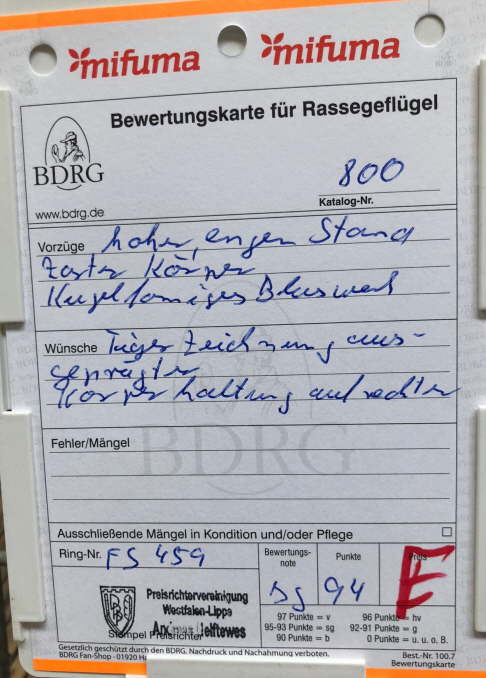 mifuma mifuma
Bewertungskarte für Rassegeflügel
BDRG
www.bdrg.de
800
Katalog-Nr.
Vorzüge hoher, engen Stand
zarter Körper
Kugelfömiges Blaswerk
Wünsche Tiger Zeichnung aus-
geprägter
Körperhaltung aufrechter
Fehler/Mängel
BDRG
Ausschließende Mängel in Kondition und/oder Pflege
Ring-Nr. FS 459
Bewertungs-
note
Punkte
Preis
sg 94 E
Preisrichtervereinigung
Westfalen-Lippe
Stempel Preisrichter
97 Punkte = v 96 Punkte = hv
95-93 Punkte = sg 92-91 Punkte = g
90 Punkte = b 0 Punkte = u. u. o. B.
Gesetzlich geschützt durch den BDRG. Nachdruck und Nachahmung verboten.
BDRG Fan-Shop - 01920
Best.-Nr. 100.7
Bewertungskarte